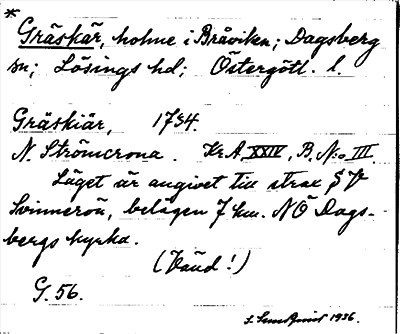 *
Gräskär, holme i Bråviken; Dagsberg
sn; Lösings hd; Östergötl. l.
Gräskiär, 1734.
N. Strömcrona. Kr A XXIV, B. N:o III.
Läget är angivet till strax S V
Svinnerön, belägen 7 km. NÖ Dags-
bergs kyrka.
(Vaud!)
G. 56.
1936.